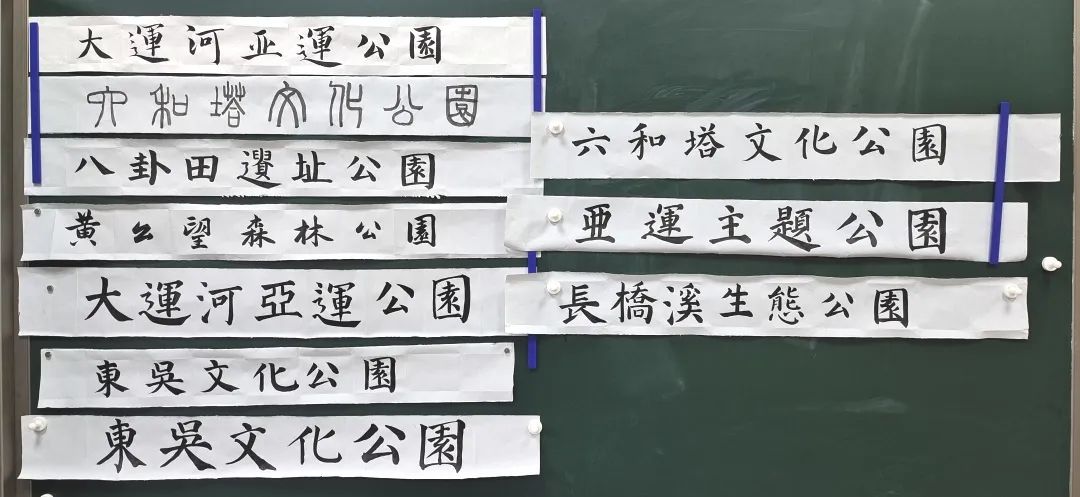 大運河亚運公園
六和塔文化公園
八卦田遺址公園
黄公望森林公園
大運河亞運公園
東吳文化公園
東吳文化公園
六和塔文化公園
亞運主題公園
長橋溪生態公園